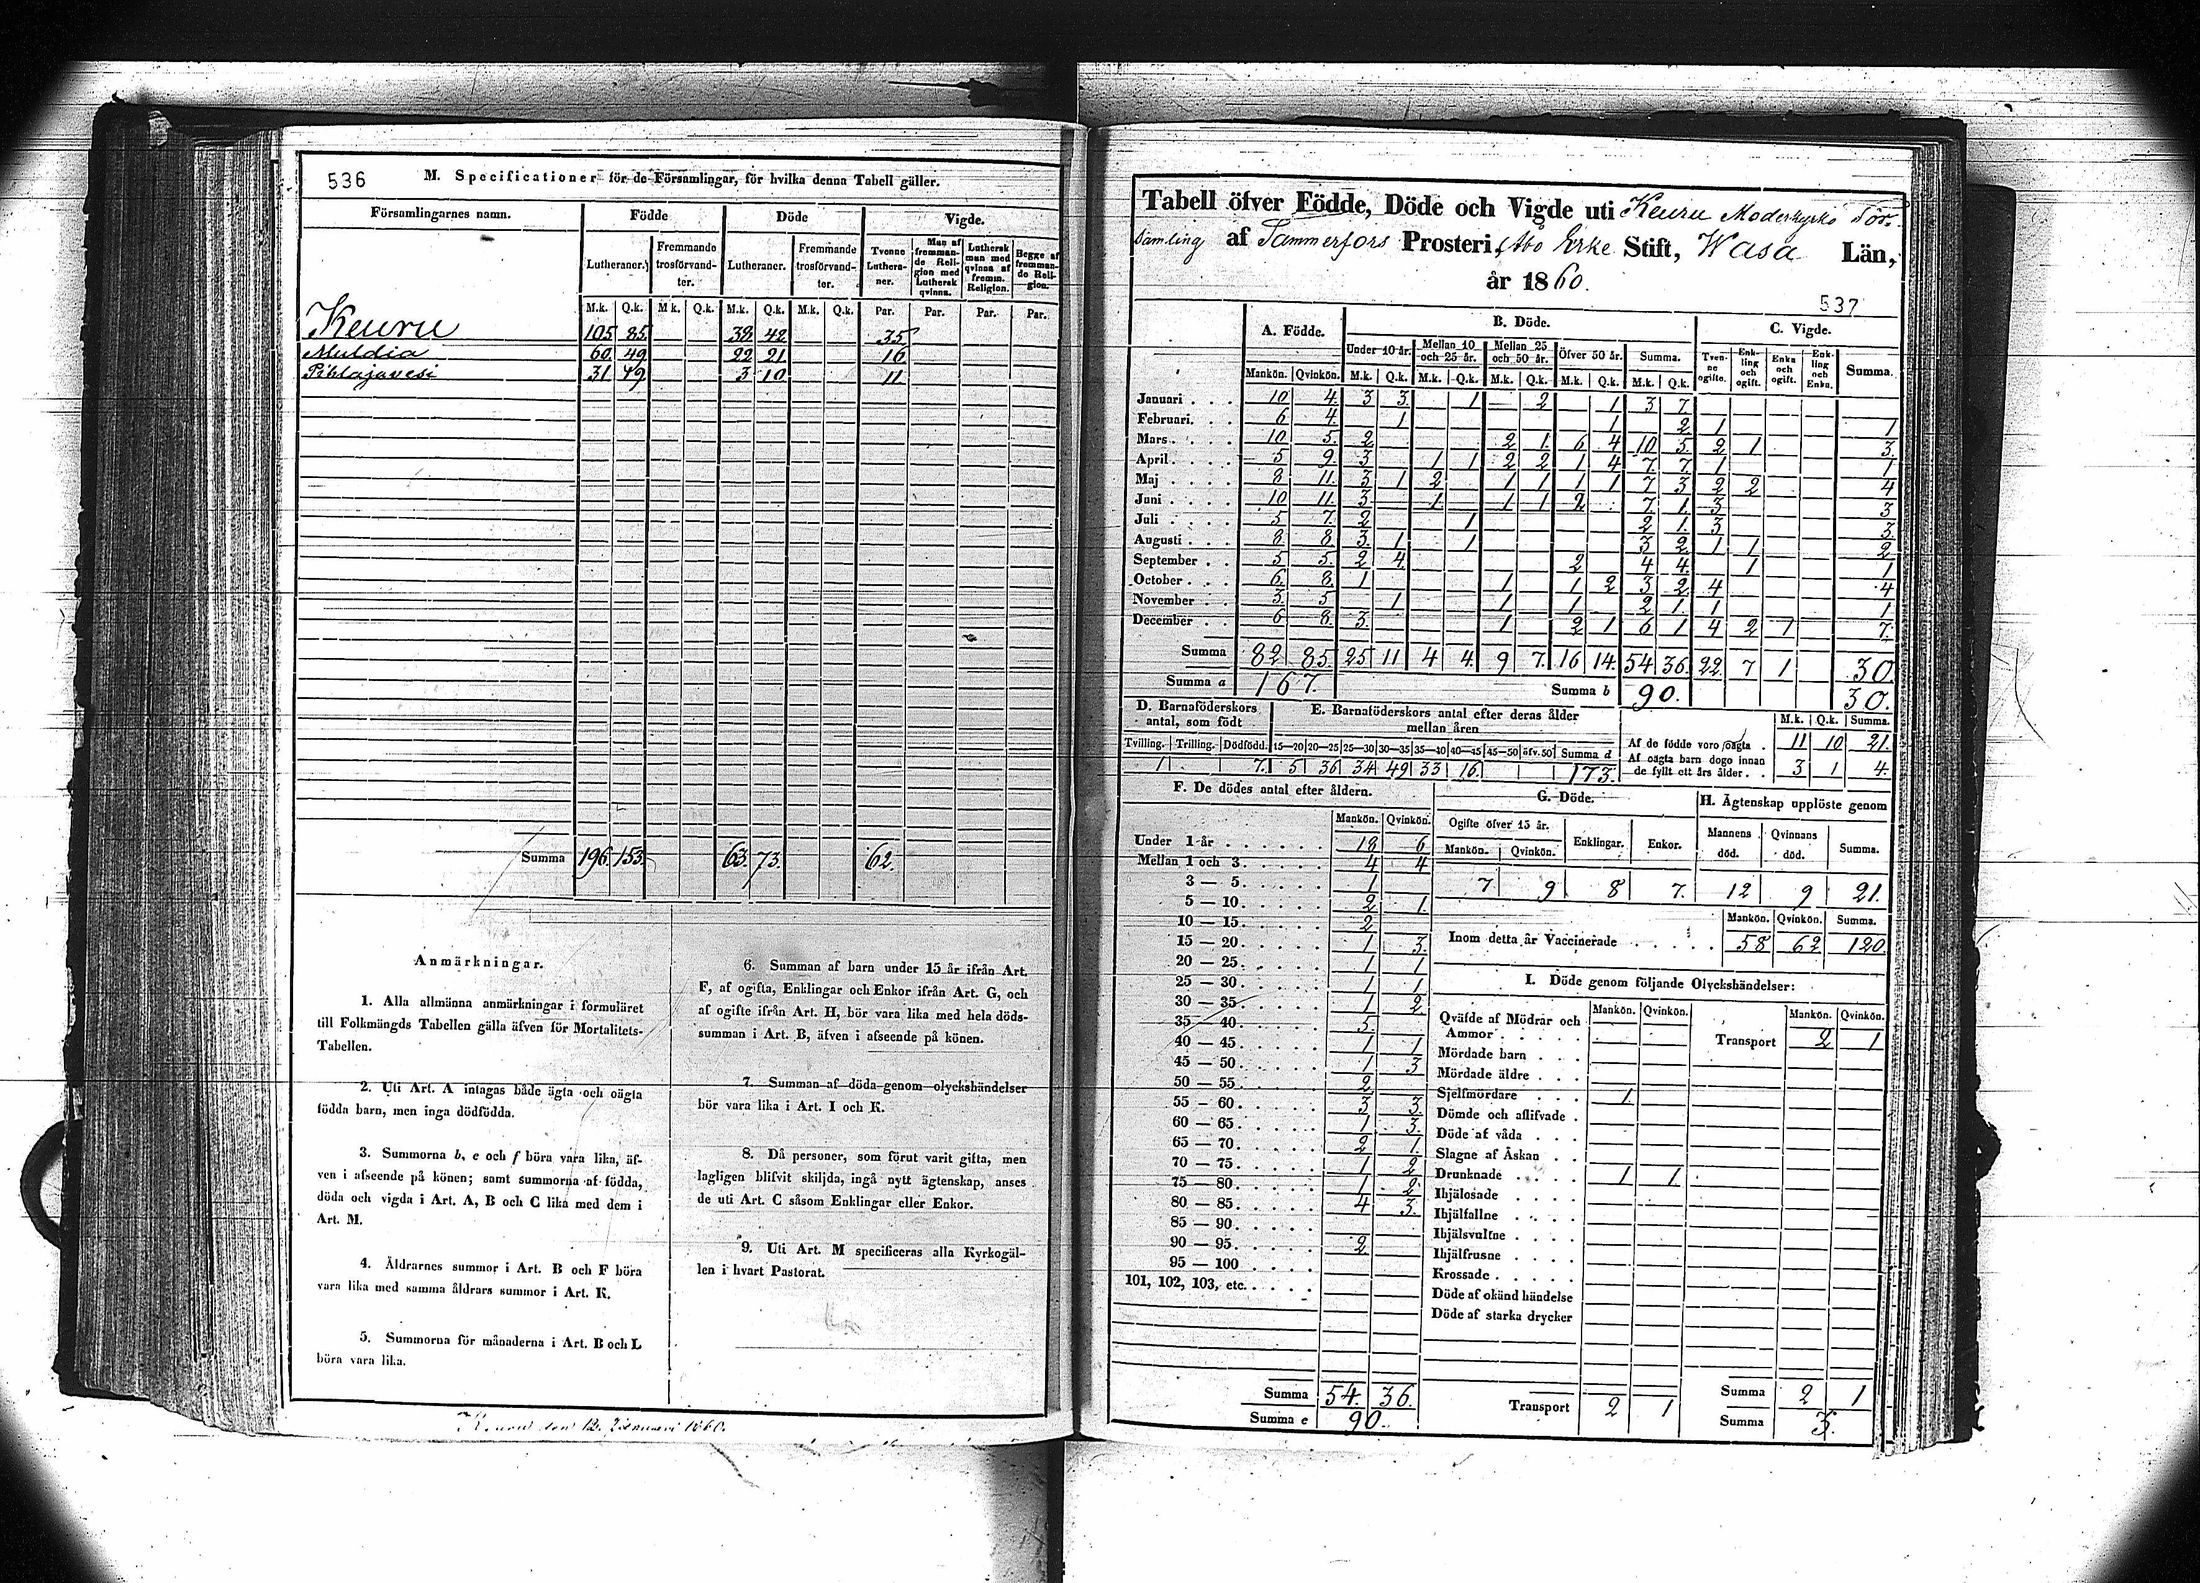 536 M. Specificationer för de Församlingar, för hvilka denna Tabell gäller.
Församlingarnes namn. Födde Döde Vigde.
Lutheraner. Fremmande trosförvandter. Lutheraner. Fremmande trosförvandter. Tvenne Lutheraner. Man af fremmande Religion med Luthersk qvinna. Luthersk man med qvinna af fremm. Religion. Begge af fremmande Religion.
M.k. Q.k. M.k. Q.k. M.k. Q.k. M.k. Q.k. Par. Par. Par. Par.
Keuru 105 85 38 42 35
Muldia 60 49 22 21 16
Pihlajavesi 31 49 3 10 11
Summa 196 153 63 73 62
Anmärkningar.
1. Alla allmänna anmärkningar i formuläret
till Folkmängds Tabellen gälla äfven för Mortalitets-
Tabellen.
2. Uti Art. A intagas både ägta och oägta
födda barn, men inga dödfödda.
3. Summorna b, e och f böra vara lika, äf-
ven i afseende på könen; samt summorna af födda,
döda och vigda i Art. A, B och C lika med dem i
Art. M.
4. Åldrarnes summor i Art. B och F böra
vara lika med samma åldrars summor i Art. K.
5. Summorna för månaderna i Art. B och L
böra vara lika.
6. Summan af barn under 15 år ifrån Art.
F, af ogifta, Enklingar och Enkor ifrån Art. G, och
af ogifte ifrån Art. H, bör vara lika med hela döds-
summan i Art. B, äfven i afseende på könen.
7. Summan af döda genom olyckshändelser
bör vara lika i Art. I och K.
8. Då personer, som förut varit gifta, men
lagligen blifvit skiljda, ingå nytt ägtenskap, anses
de uti Art. C såsom Enklingar eller Enkor.
9. Uti Art. M specificeras alla Kyrkogäl-
len i hvart Pastorat.
Keuru den 12 Januari 1860.
Tabell öfver Födde, Döde och Vigde uti Keuru Moderkyrko För-
samling af Tammerfors Prosteri, Åbo Erke Stift, Wasa Län,
år 1860.
537
A. Födde. B. Döde. C. Vigde.
Under 10 år. Mellan 10 och 25 år. Mellan 25 och 50 år. Öfver 50 år. Summa. Tvenne ogifte. Enkling och ogift. Enka och ogift. Enkling och Enka. Summa.
Mankön. Qvinkön. M.k. Q.k. M.k. Q.k. M.k. Q.k. M.k. Q.k. M.k. Q.k.
Januari 10 4 3 3 1 2 1 3 7
Februari 6 4 1 1 2 1 1
Mars 10 5 2 2 1 6 4 10 5 2 1 3
April 5 9 3 1 1 2 2 1 4 7 7 1 1
Maj 8 11 3 1 2 1 1 1 1 7 3 2 2 4
Juni 10 11 3 1 1 1 2 7 1 3 3
Juli 5 7 2 1 2 1 3 3
Augusti 8 8 3 1 1 3 2 1 1 2
September 5 5 2 4 2 4 4 1 1
October 6 8 1 1 1 2 3 2 4 4
November 3 5 1 1 1 2 1 1 1
December 6 8 3 1 2 1 6 1 4 2 1 7
Summa 82 85 25 11 4 4 9 7 16 14 54 36 22 7 1 30
Summa a 167. Summa b 90. 30.
D. Barnaföderskors antal, som födt
Tvilling. Trilling. Dödfödd.
1 7
E. Barnaföderskors antal efter deras ålder mellan åren
15—20 20—25 25—30 30—35 35—40 40—45 45—50 öfv. 50 Summa d
5 36 34 49 33 16 173.
M.k. Q.k. Summa.
Af de födde voro oägta 11 10 21.
Af oägta barn dogo innan
de fyllt ett års ålder 3 1 4.
F. De dödes antal efter åldern.
Mankön. Qvinkön.
Under 1 år 18 6
Mellan 1 och 3 4 4
3 — 5 1
5 — 10 2 1
10 — 15 2
15 — 20 1 3
20 — 25 1 1
25 — 30 1 1
30 — 35 1 2
35 — 40 5
40 — 45 1 1
45 — 50 1 3
50 — 55 2
55 — 60 3 3
60 — 65 1 3
65 — 70 2 1
70 — 75 1 2
75 — 80 1 2
80 — 85 4 3
85 — 90
90 — 95 2
95 — 100
101, 102, 103, etc.
Summa 54. 36.
Summa e 90.
G. Döde.
Ogifte öfver 15 år. Enklingar. Enkor.
Mankön. Qvinkön.
7 9 8 7.
H. Ägtenskap upplöste genom
Mannens död. Qvinnans död. Summa.
12 9 21.
Mankön. Qvinkön. Summa.
Inom detta år Vaccinerade 58 62 120
I. Döde genom följande Olyckshändelser:
Mankön. Qvinkön. Mankön. Qvinkön.
Qväfde af Mödrar och
Ammor Transport 2 1
Mördade barn
Mördade äldre
Sjelfmördare 1
Dömde och aflifvade
Döde af våda
Slagne af Åskan
Drunknade 1 1
Ihjälosade
Ihjälfallne
Ihjälsvultne
Ihjälfrusne
Krossade
Döde af okänd händelse
Döde af starka drycker
Transport 2 1 Summa 2 1
Summa 3.